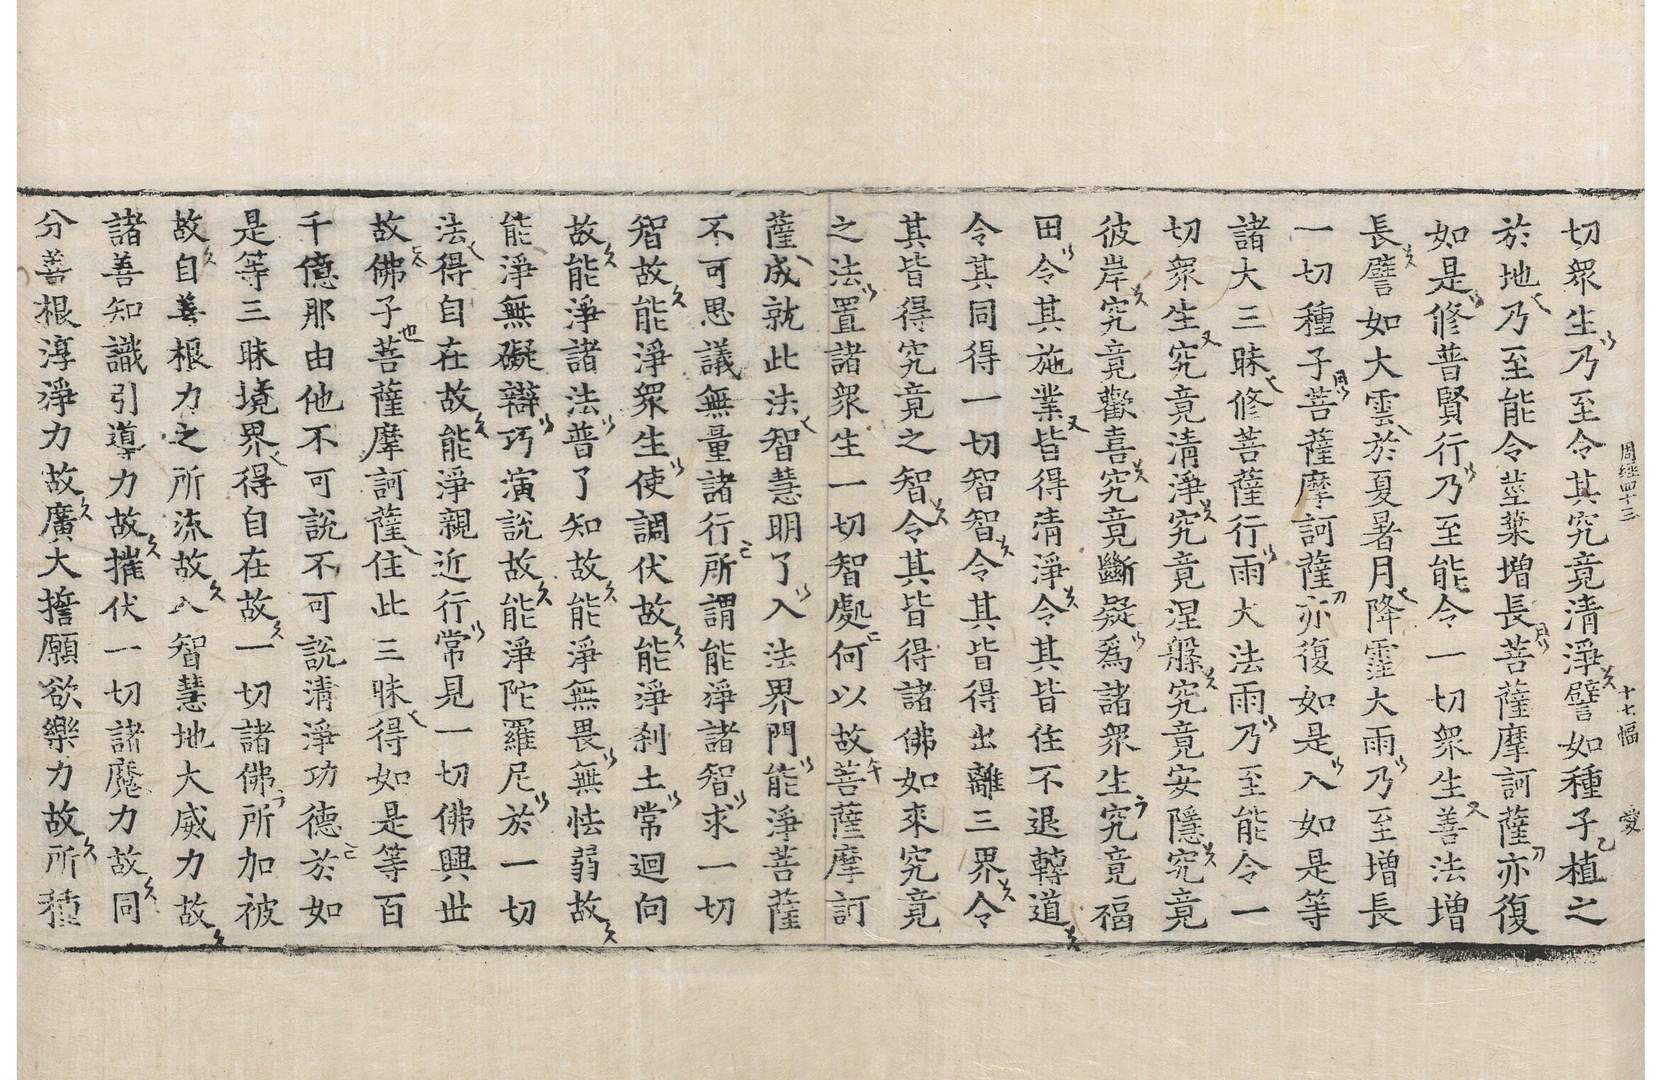 周經四十三 十七幅 愛
切衆生乃至令其究竟清淨譬如種子植之
於地乃至能令莖葉增長菩薩摩訶薩亦復
如是修普賢行乃至能令一切衆生善法增
長譬如大雲於夏暑月降霔大雨乃至增長
一切種子菩薩摩訶薩亦復如是入如是等
諸大三昧修菩薩行雨大法雨乃至能令一
切衆生究竟清淨究竟涅槃究竟安隱究竟
彼岸究竟歡喜究竟斷疑爲諸衆生究竟福
田令其施業皆得清淨令其皆住不退轉道
令其同得一切智智令其皆得出離三界令
其皆得究竟之智令其皆得諸佛如來究竟
之法置諸衆生一切智處何以故菩薩摩訶
薩成就此法智慧明了入法界門能淨菩薩
不可思議無量諸行所謂能淨諸智求一切
智故能淨衆生使調伏故能淨刹土常迴向
故能淨諸法普了知故能淨無畏無怯弱故
能淨無礙辯巧演說故能淨陀羅尼於一切
法得自在故能淨親近行常見一切佛興世
故佛子菩薩摩訶薩住此三昧得如是等百
千億那由他不可說不可說清淨功德於如
是等三昧境界得自在故一切諸佛所加被
故自善根力之所流故入智慧地大威力故
諸善知識引導力故摧伏一切諸魔力故同
分善根淳淨力故廣大誓願欲樂力故所種